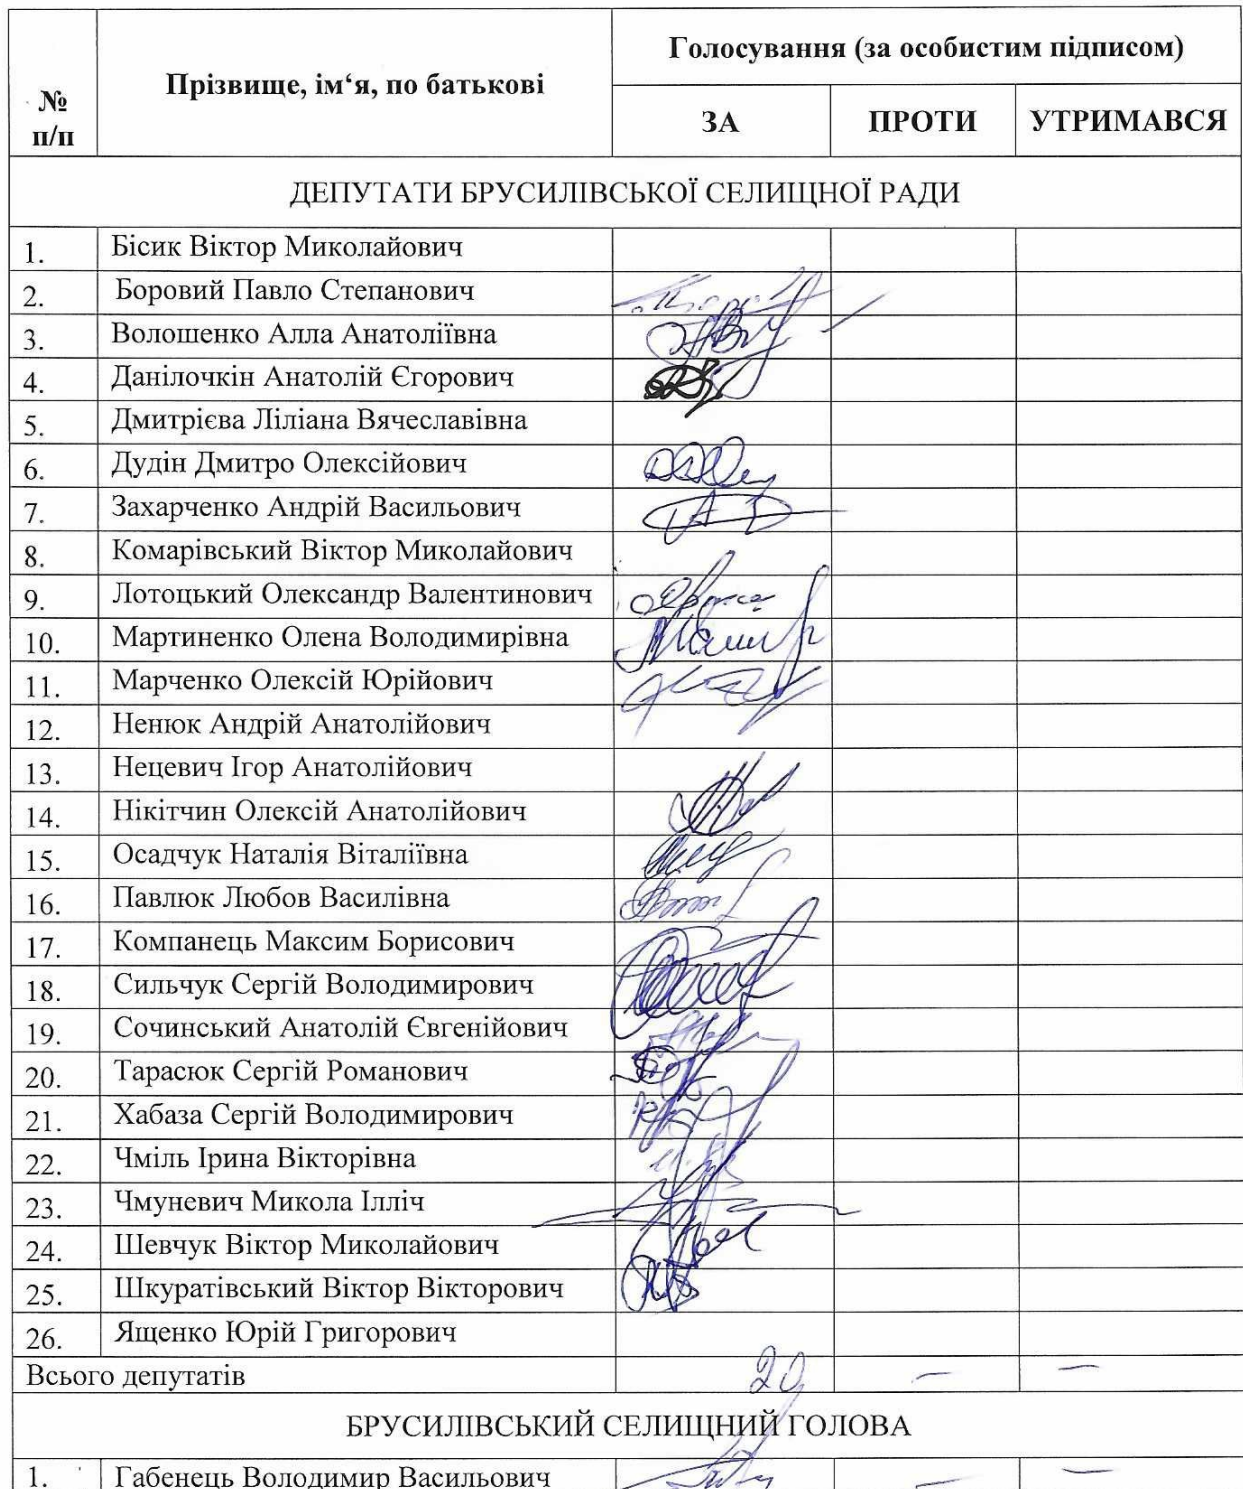 № п/п
Прізвище, ім‘я, по батькові
Голосування (за особистим підписом)
ЗА ПРОТИ УТРИМАВСЯ
ДЕПУТАТИ БРУСИЛІВСЬКОЇ СЕЛИЩНОЇ РАДИ
1. Бісик Віктор Миколайович
2. Боровий Павло Степанович
3. Волошенко Алла Анатоліївна
4. Данілочкін Анатолій Єгорович
5. Дмитрієва Ліліана Вячеславівна
6. Дудін Дмитро Олексійович
7. Захарченко Андрій Васильович
8. Комарівський Віктор Миколайович
9. Лотоцький Олександр Валентинович
10. Мартиненко Олена Володимирівна
11. Марченко Олексій Юрійович
12. Ненюк Андрій Анатолійович
13. Нецевич Ігор Анатолійович
14. Нікітчин Олексій Анатолійович
15. Осадчук Наталія Віталіївна
16. Павлюк Любов Василівна
17. Компанець Максим Борисович
18. Сильчук Сергій Володимирович
19. Сочинський Анатолій Євгенійович
20. Тарасюк Сергій Романович
21. Хабаза Сергій Володимирович
22. Чміль Ірина Вікторівна
23. Чмуневич Микола Ілліч
24. Шевчук Віктор Миколайович
25. Шкуратівський Віктор Вікторович
26. Ященко Юрій Григорович
Всього депутатів 20 – –
БРУСИЛІВСЬКИЙ СЕЛИЩНИЙ ГОЛОВА
1. Габенець Володимир Васильович – –